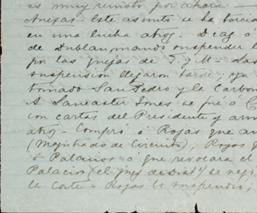 es muy remoto por ahora
Arrejas. Este asunto se ha torcido
en una lucha
de Dublan mando suspender l
por las quejas de T. y M. Las
suspension dejaron
tomado San Pedro y le Carbon
A Lancaster Jones se fué á C
con cartas del Presidente y arm
Compró á Rojas que an
(Magistrado de Circuito), Rojas q
á Palacios á que revocara el
Palacios (el juez de Dist.) se neg
la Corte á Rojas le suspendió,